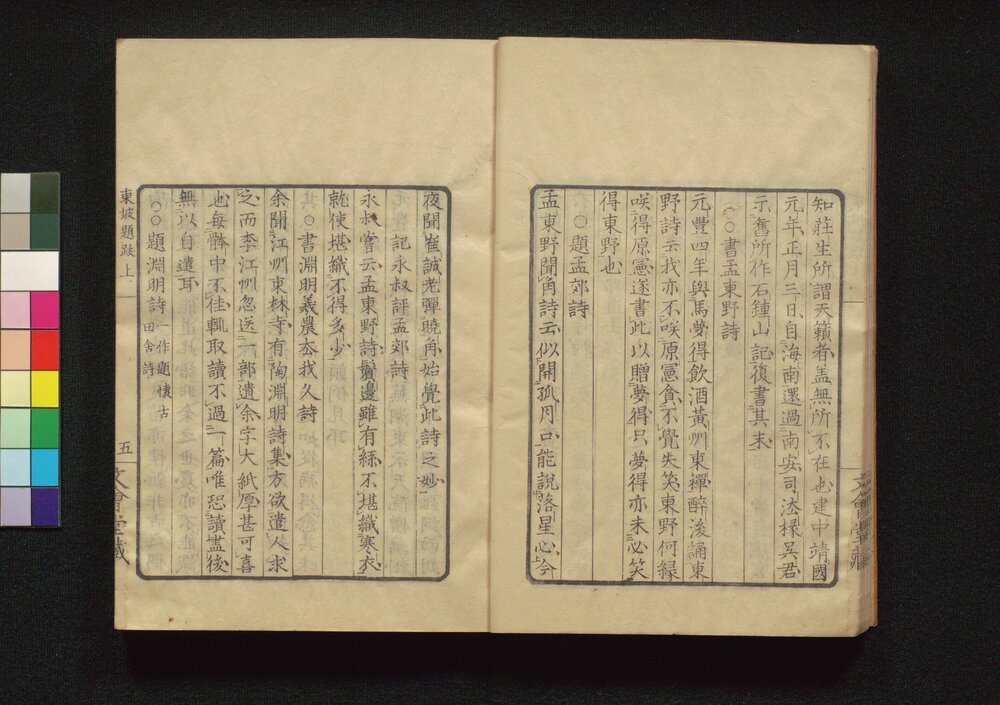 知莊生所謂天籟者盖無所不在也建中靖國
元年正月三日自海南還過南安司法掾吳君
示舊所作石鍾山記復書其末
○書孟東野詩
元豐四年與馬夢得飲酒黃州東禪醉後誦東
野詩云我亦不咲原憲貧不覺失笑東野何緣
咲得原憲遂書此以贈夢得只夢得亦未必笑
得東野也
○題孟郊詩
孟東野聞角詩云似開孤月口能說落星心今
夜聞崔誠老彈曉角始覺此詩之妙
記永叔評孟郊詩
永叔嘗云孟東野詩鬢邊雖有絲不堪織寒衣
就使堪織不得多少
○書淵明羲農去我久詩
余聞江州東林寺有陶淵明詩集方欲遣人求
之而李江州忽送一部遺余字大紙厚甚可喜
也每體中不佳輒取讀不過一篇唯恐讀盡後
無以自遣耳
○○題淵明詩一作題懷古田舍詩
東坡題跋上
五
文會堂藏